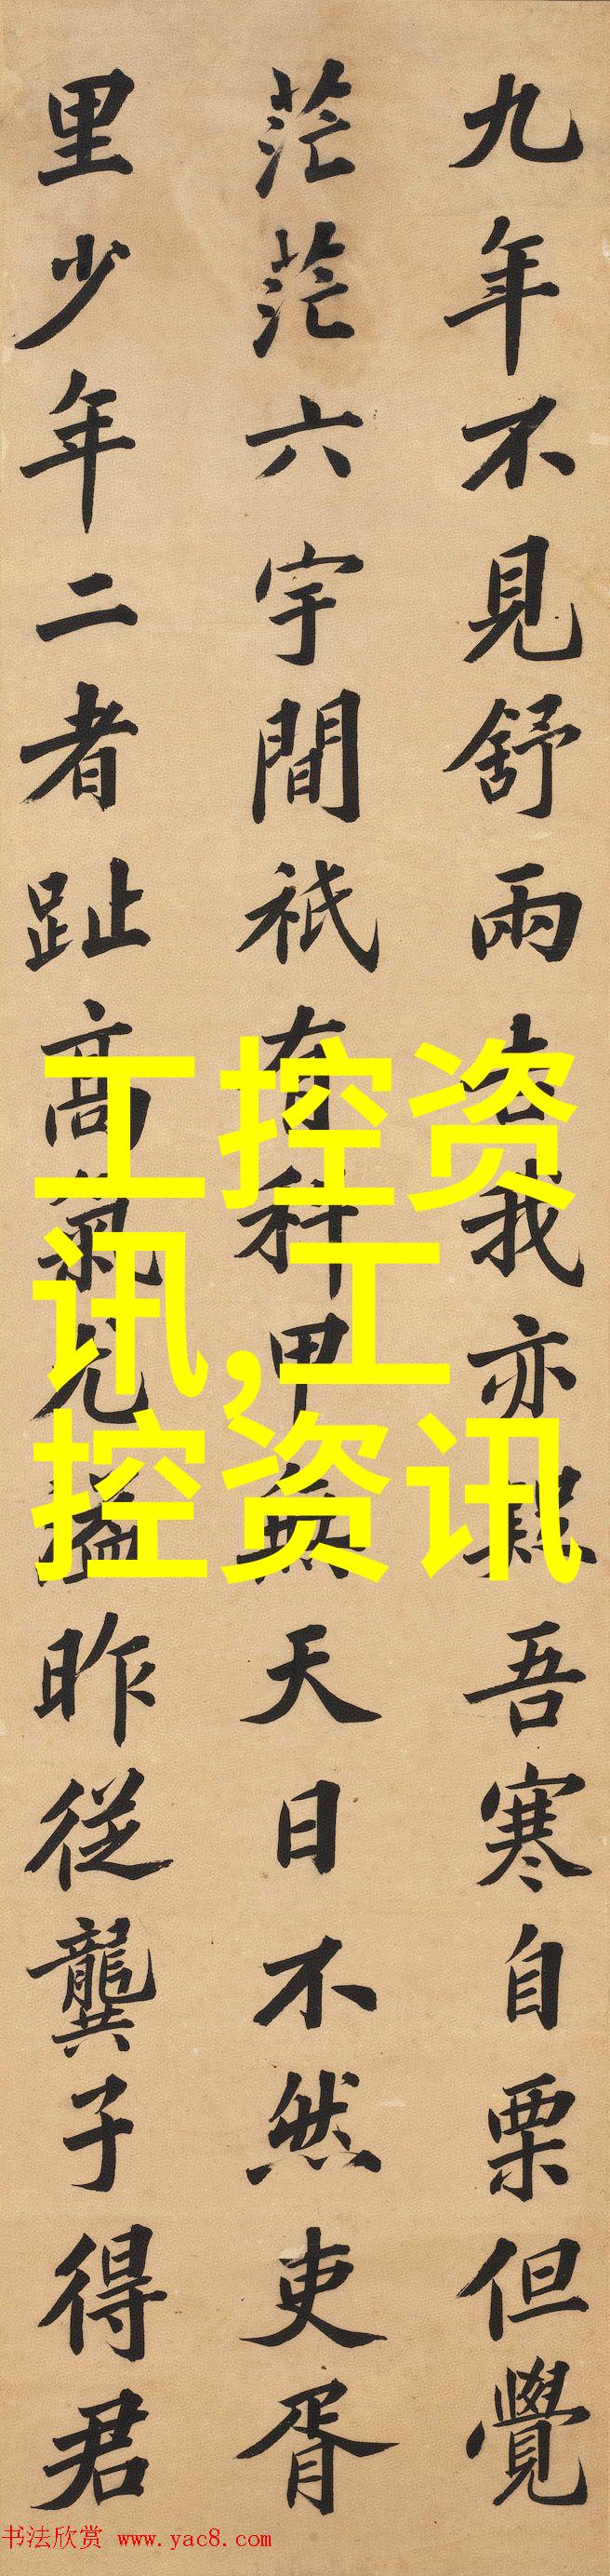 九年不見舒兩吉我亦疑吾寒自栗但覺
茫茫六宇間祇有科甲無天日不然吏胥
里少年二者趾高氣尤溢昨從龔子得君
工控资
讯,工
控资讯
书法欣赏 www.yac8.com